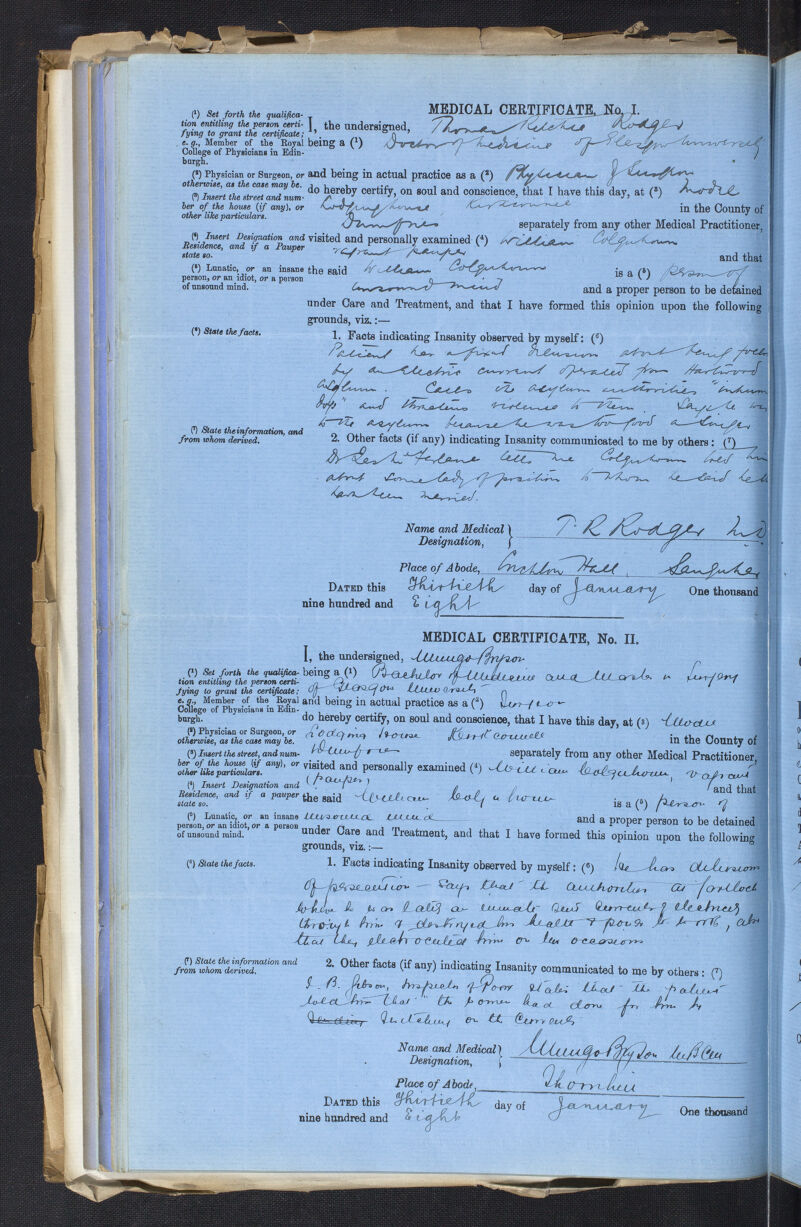 MEDICAL CERTIFICATE, No. I.
(¹) Set forth the qualifica-
tion entitling the person certi-
fying to grant the certificate;
e. g., Member of the Royal
College of Physicians in Edin-
burgh.
(²) Physician or Surgeon, or
otherwise, as the case may be.
(³) Insert the street and num-
ber of the house (if any), or
other like particulars.
(⁴) Insert Designation and
Residence, and if a Pauper
state so.
(⁵) Lunatic, or an insane
person, or an idiot, or a person
of unsound mind.
(⁶) State the facts.
(⁷) State the information, and
from whom derived.
I, the undersigned, Thomas Ritchie Rodger
being a (¹) Doctor of Medicine of Glasgow University
and being in actual practice as a (²) Physician & Surgeon
do hereby certify, on soul and conscience, that I have this day, at (³) Model
Lodging house Kirkconnel in the County of
Dumfries separately from any other Medical Practitioner,
visited and personally examined (⁴) William Colquhoun
vagrant pauper and that
the said William Colquhoun is a (⁵) person of
unsound mind and a proper person to be detained
under Care and Treatment, and that I have formed this opinion upon the following
grounds, viz.:—
1. Facts indicating Insanity observed by myself: (⁶)
Patient has a fixed delusion about being
by an electric current operated from Hartwood
Asylum. Calls the asylum authorities "
dogs" and threatens violence to them. Says he was
to the asylum because he was too good a singer
2. Other facts (if any) indicating Insanity communicated to me by others: (⁷)
Dr tells me Colquhoun told him
about some lady of position to whom he said he
have been married.
Name and Medical
Designation, T. R. Rodger M.D
Place of Abode, Crichton Hall, Sanquhar
DATED this Thirtieth day of January One thousand
nine hundred and Eight
MEDICAL CERTIFICATE, No. II.
(¹) Set forth the qualifica-
tion entitling the person certi-
fying to grant the certificate;
e. g., Member of the Royal
College of Physicians in Edin-
burgh.
(²) Physician or Surgeon, or
otherwise, as the case may be.
(³) Insert the street, and num-
ber of the house (if any), or
other like particulars.
(⁴) Insert Designation and
Residence, and if a pauper
state so.
(⁵) Lunatic, or an insane
person, or an idiot, or a person
of unsound mind.
(⁶) State the facts.
(⁷) State the information and
from whom derived.
I, the undersigned, Mungo Bryson
being a (¹) Bachelor of Medicine and Master in Surgery
of Glasgow University
and being in actual practice as a (²) Surgeon
do hereby certify, on soul and conscience, that I have this day, at (³) Model
Lodging House Kirkconnell in the County of
Dumfries separately from any other Medical Practitioner,
visited and personally examined (⁴) William Colquhoun, vagrant
(pauper) and that
the said William Colquhoun is a (⁵) person of
unsound mind and a proper person to be detained
under Care and Treatment, and that I have formed this opinion upon the following
grounds, viz.:—
1. Facts indicating Insanity observed by myself: (⁶) He has delusions
of persecution – says that the authorities at Gartloch
where he was lately an inmate send currents of electricity
through him & destroyed his health & power to work, also
that they electrocuted him on ten occasions
2. Other facts (if any) indicating Insanity communicated to me by others: (⁷)
J. B. Gibson, Inspector of Poor states that the patient
told him that the women had done for him by
switching on the currents
Name and Medical
Designation, Mungo Bryson M.B. C.M.
Place of Abode, Thornhill
DATED this Thirtieth day of January One thousand
nine hundred and Eight